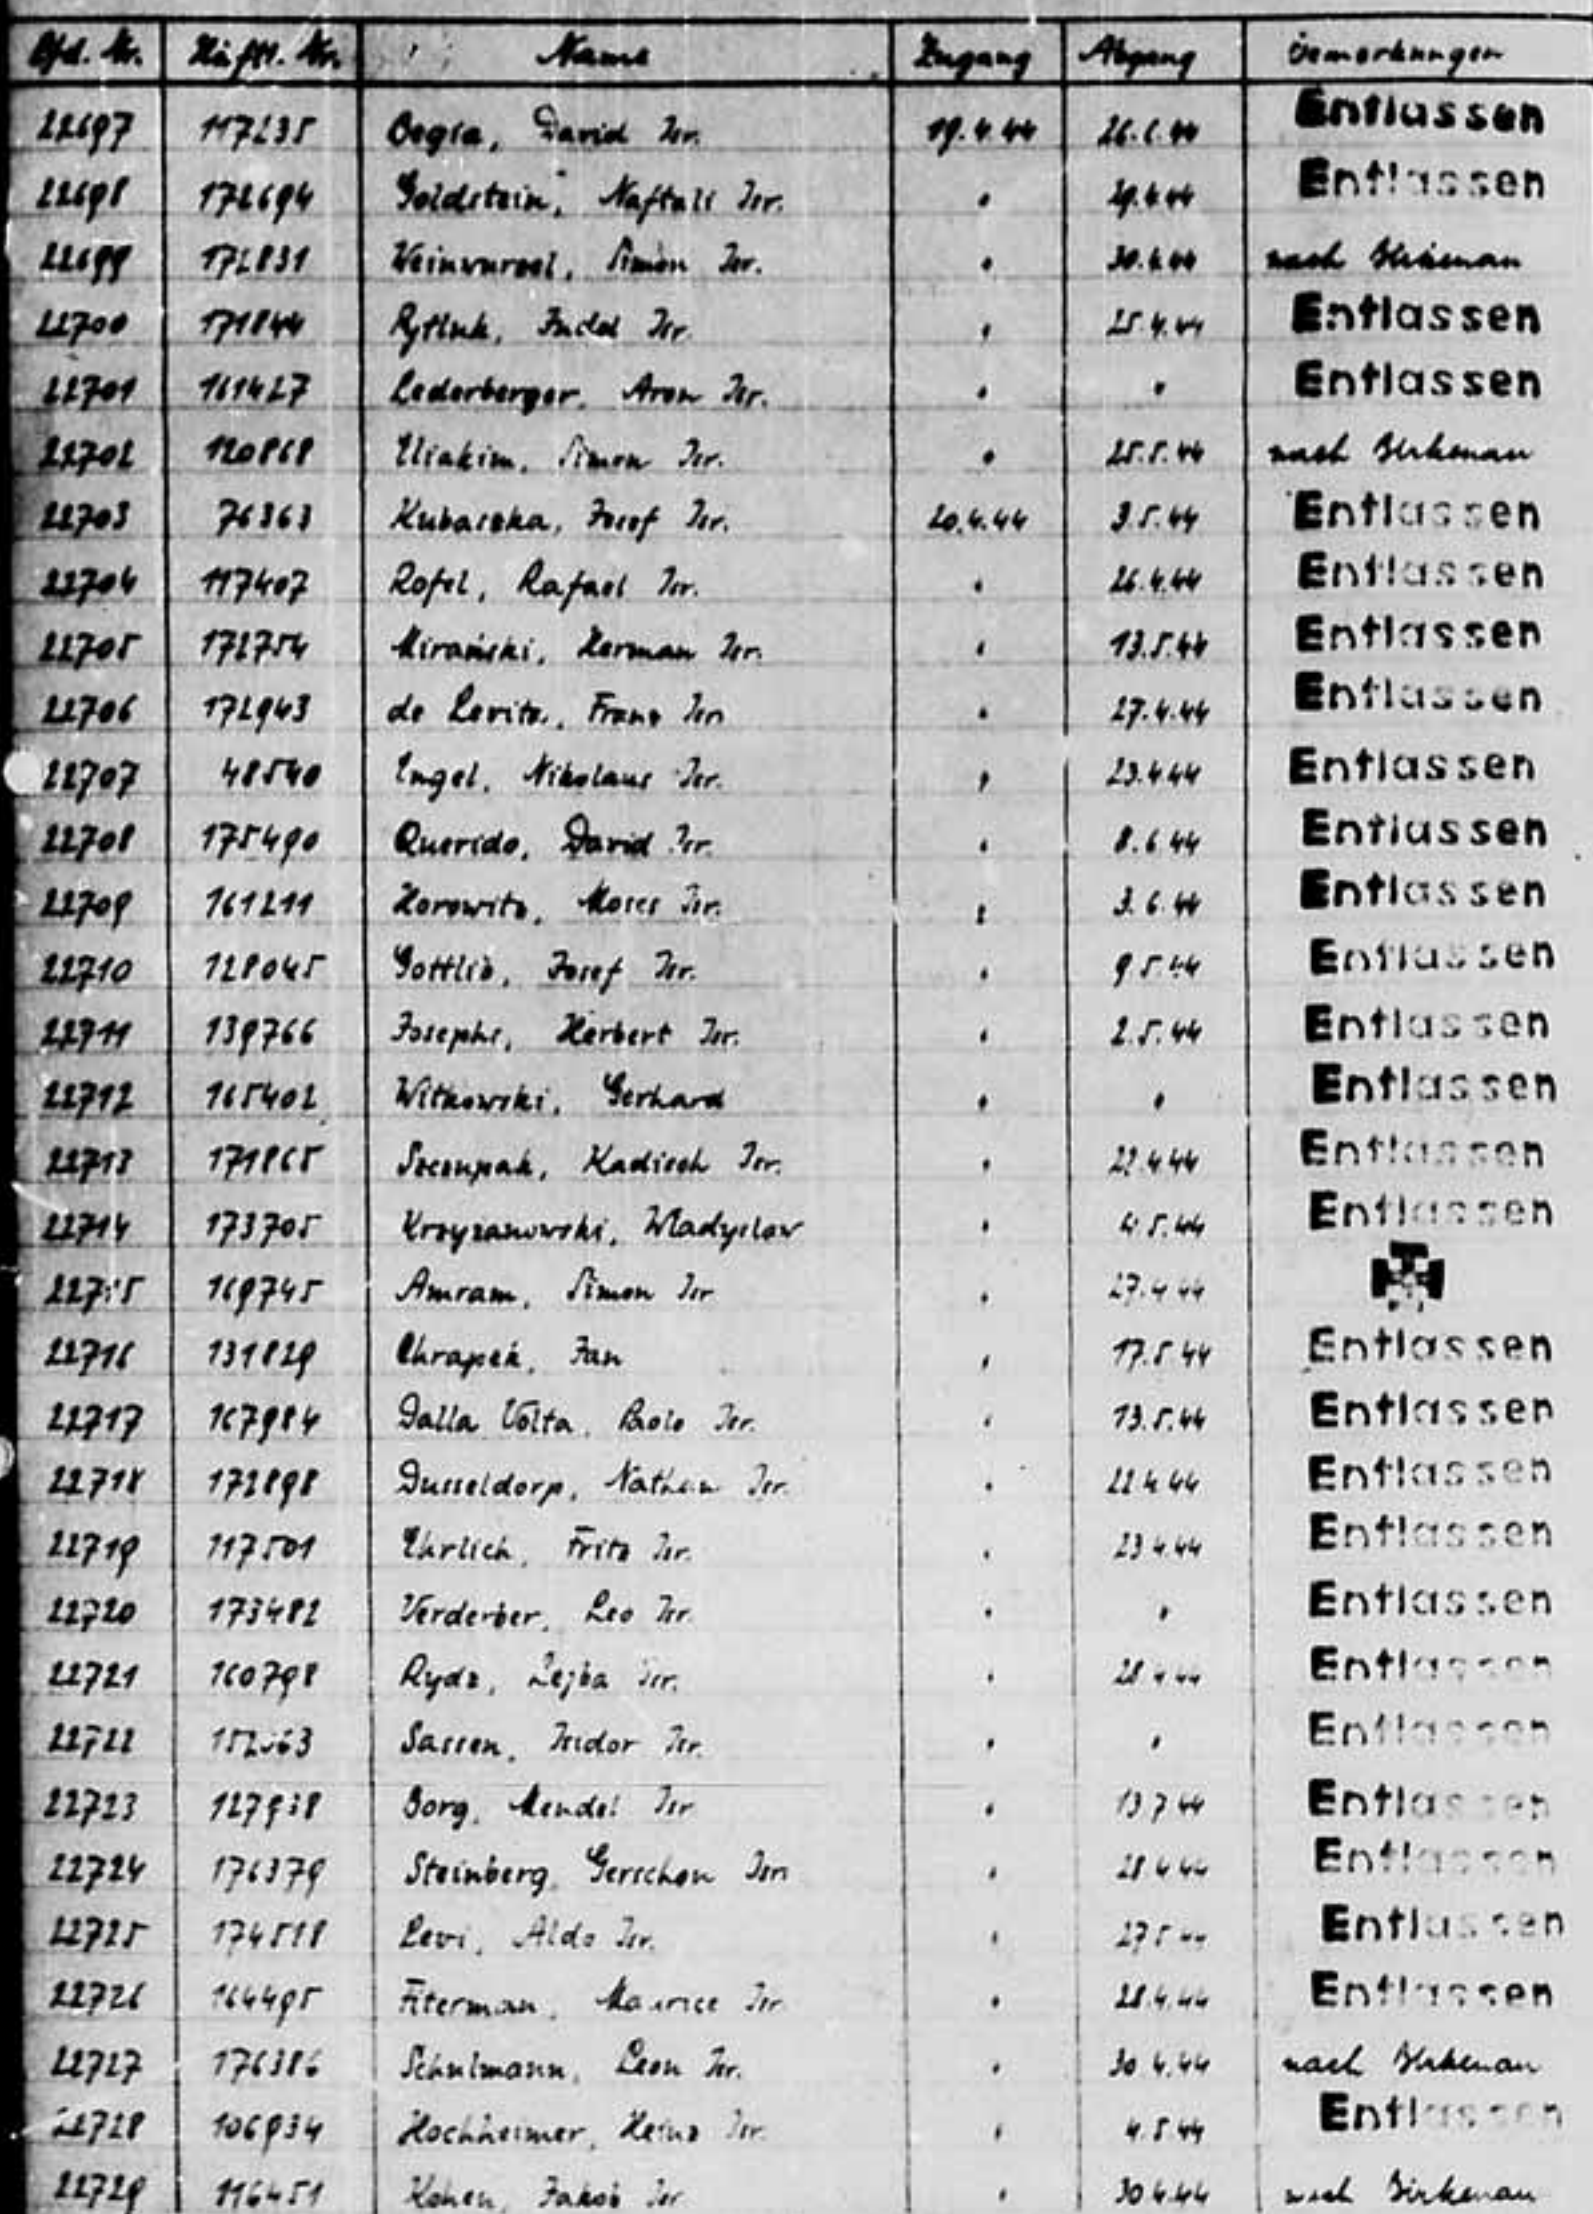 Lfd. Nr. Häftl. Nr. Name Zugang Abgang Bemerkungen
22697 117235 David Isr. 19.4.44 Entlassen
22698 172694 Goldstein, Naftali Isr. " 29.4.44 Entlassen
22699 172831 Weinwurzel, Simon Isr. " 30.4.44 nach Birkenau
22700 171844 Isr. " 25.4.44 Entlassen
22701 161427 Lederberger, Aron Isr. " " Entlassen
22702 120868 Eliakim, Simon Isr. " 25.5.44 nach Birkenau
22703 76363 Kubaszka, Josef Isr. 20.4.44 3.5.44 Entlassen
22704 117407 Rofel, Rafael Isr. " 26.4.44 Entlassen
22705 172754 Mirański, Herman Isr. " 13.5.44 Entlassen
22706 172943 de Levita, Franz Isr. " 27.4.44 Entlassen
22707 48540 Engel, Nikolaus Isr. " 23.4.44 Entlassen
22708 175490 Querido, David Isr. " 8.6.44 Entlassen
22709 161211 Horowitz, Moses Isr. " 3.6.44 Entlassen
22710 128045 Gottlib, Josef Isr. " 9.5.44 Entlassen
22711 139766 Josephs, Herbert Isr. " 2.5.44 Entlassen
22712 165402 Witkowski, Gerhard " " Entlassen
22713 171865 Szczupak, Kadisch Isr. " 22.4.44 Entlassen
22714 173705 Krzyzanowski, Wladyslaw " 4.5.44 Entlassen
22715 169745 Amram, Simon Isr. " 27.4.44
22716 131829 Chrapek, Jan " 17.5.44 Entlassen
22717 167984 Dalla Volta, Paolo Isr. " 13.5.44 Entlassen
22718 172898 Dusseldorp, Nathan Isr. " 22.4.44 Entlassen
22719 117501 Ehrlich, Fritz Isr. " 23.4.44 Entlassen
22720 173482 Verderber, Leo Isr. " " Entlassen
22721 160798 Rydz, Lejba Isr. " 28.4.44 Entlassen
22722 Sassen, Isidor Isr. " " Entlassen
22723 127938 Borg, Mendel Isr. " 13.7.44 Entlassen
22724 176379 Steinberg, Gerschon Isr. " 28.4.44 Entlassen
22725 174518 Levi, Aldo Isr. " 27.5.44 Entlassen
22726 164495 Fiterman, Maurice Isr. " 28.4.44 Entlassen
22727 176386 Schulmann, Leon Isr. " 30.4.44 nach Birkenau
22728 106934 Hochheimer, Heinz Isr. " 4.5.44 Entlassen
22729 116451 Kohen, Jakob Isr. " 30.4.44 nach Birkenau